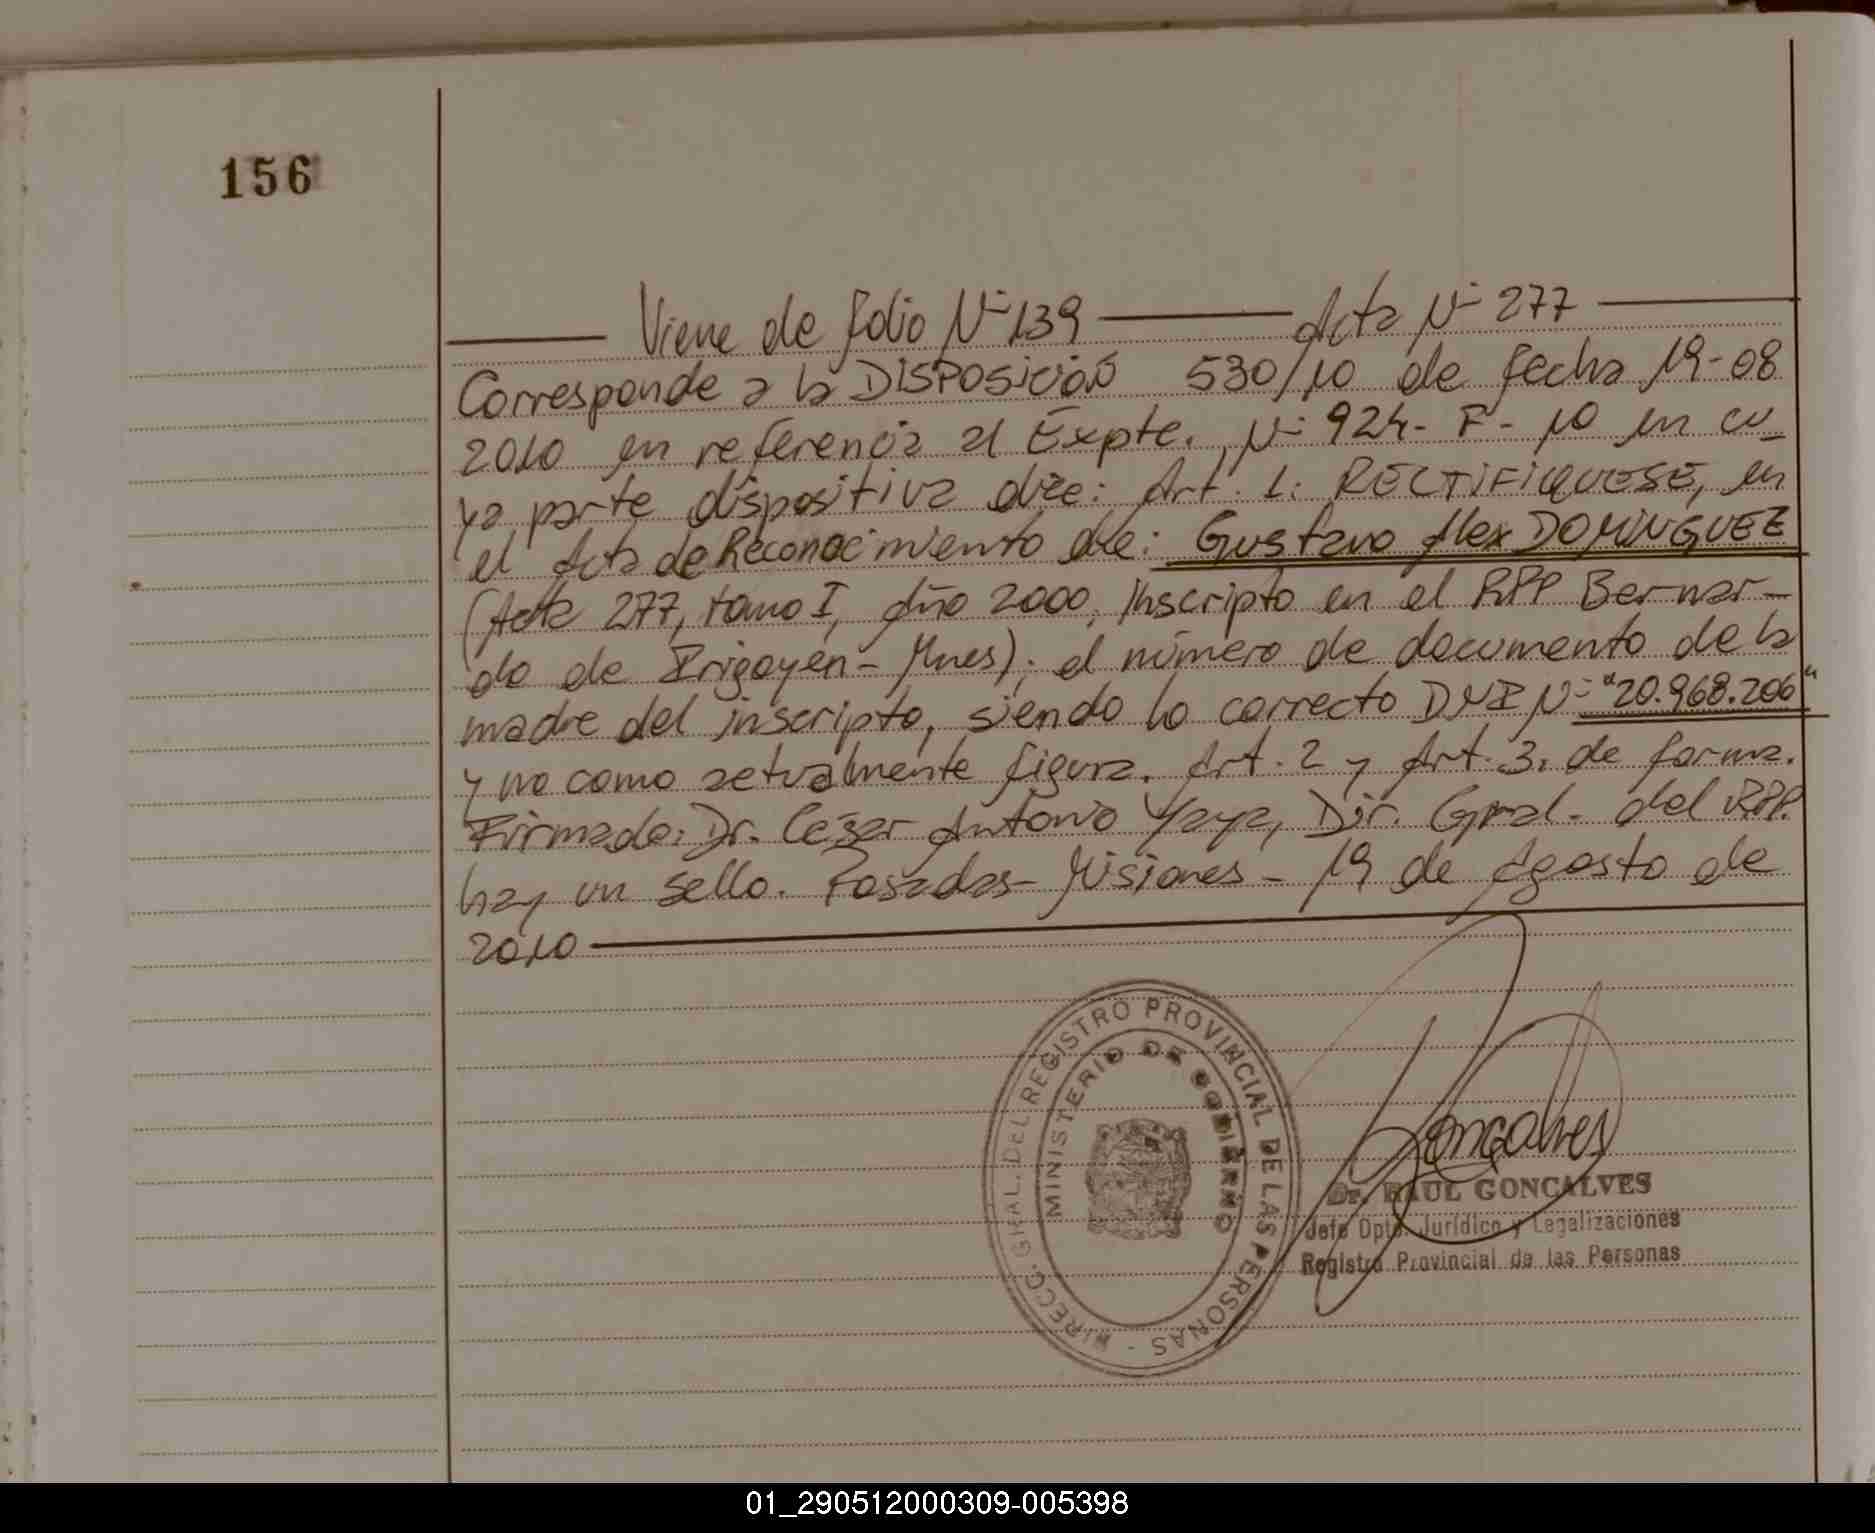 156
Viene de folio Nº 139 Acta Nº 277
Corresponde a la DISPOSICIÓN 530/10 de fecha 19-08
2010 en referencia al Expte. Nº 924-F-10 en cu_
ya parte dispositiva dice: Art. 1: RECTIFIQUESE, en
el Acta de Reconocimiento de: Gustavo Alex DOMINGUEZ
(Acta 277, tomo I, Año 2000, inscripto en el RPP Bernar-
do de Irigoyen - Mnes); el número de documento de la
madre del inscripto, siendo lo correcto DNI Nº "20.968.206"
y no como actualmente figura. Art. 2 y Art. 3. de forma.
Firmado: Dr. César Antonio Yaya, Dir. Gral. del RPP.
hay un sello. Posadas - Misiones - 19 de Agosto de
2010
DIRECC. GRAL. DEL REGISTRO PROVINCIAL DE LAS PERSONAS -
MINISTERIO DE GOBIERNO
Goncalves
Dr. RAUL GONCALVES
Jefe Dpto. Jurídico y Legalizaciones
Registro Provincial de las Personas
01_290512000309-005398